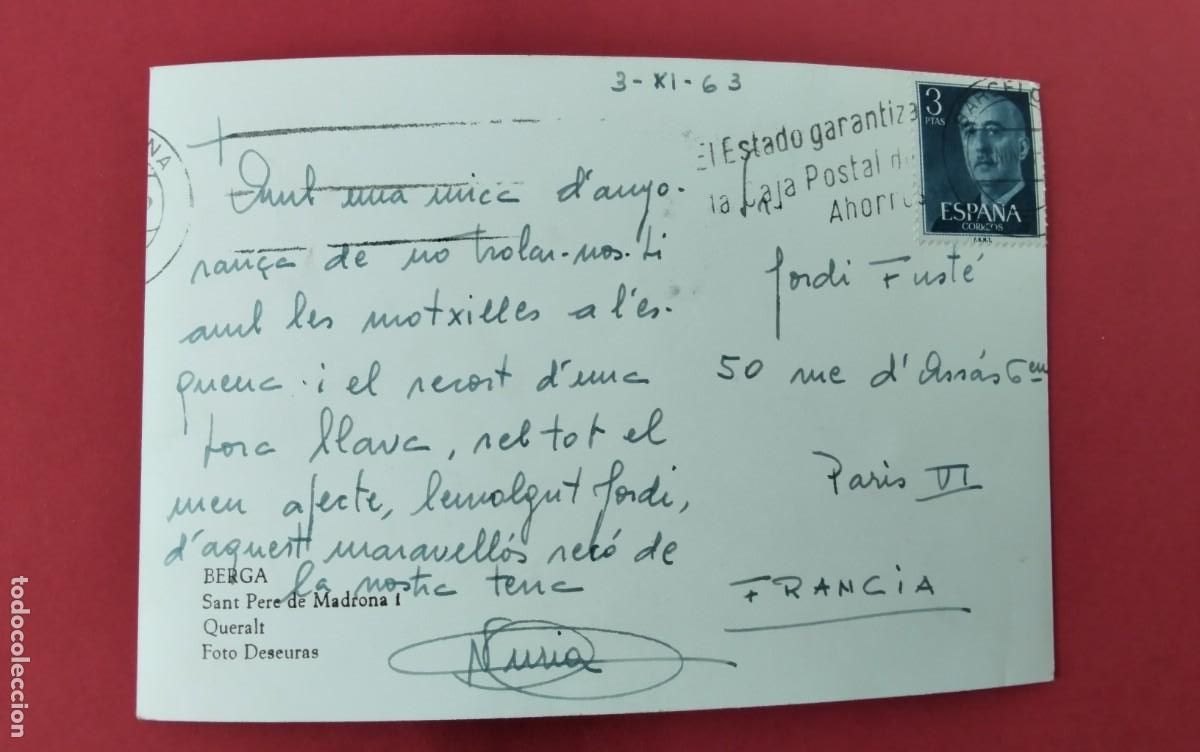 3-XI-63
El Estado garantiza
la Caja Postal de
Ahorros
3
PTAS
ESPAÑA
CORREOS
F.N.M.T.
Amb una mica d'anyo-
rança de no trobar-nos-hi
amb les motxilles a l'es-
quena i el record d'una
tora llava, reb tot el
meu afecte, benvolgut Jordi,
d'aquest maravellós recó de
la nostra terra
Nuria
Sr.
Jordi Fusté
50 rue d'Assás 6em
Paris VI
FRANCIA
BERGA
Sant Pere de Madrona i
Queralt
Foto Deseuras
todocoleccion